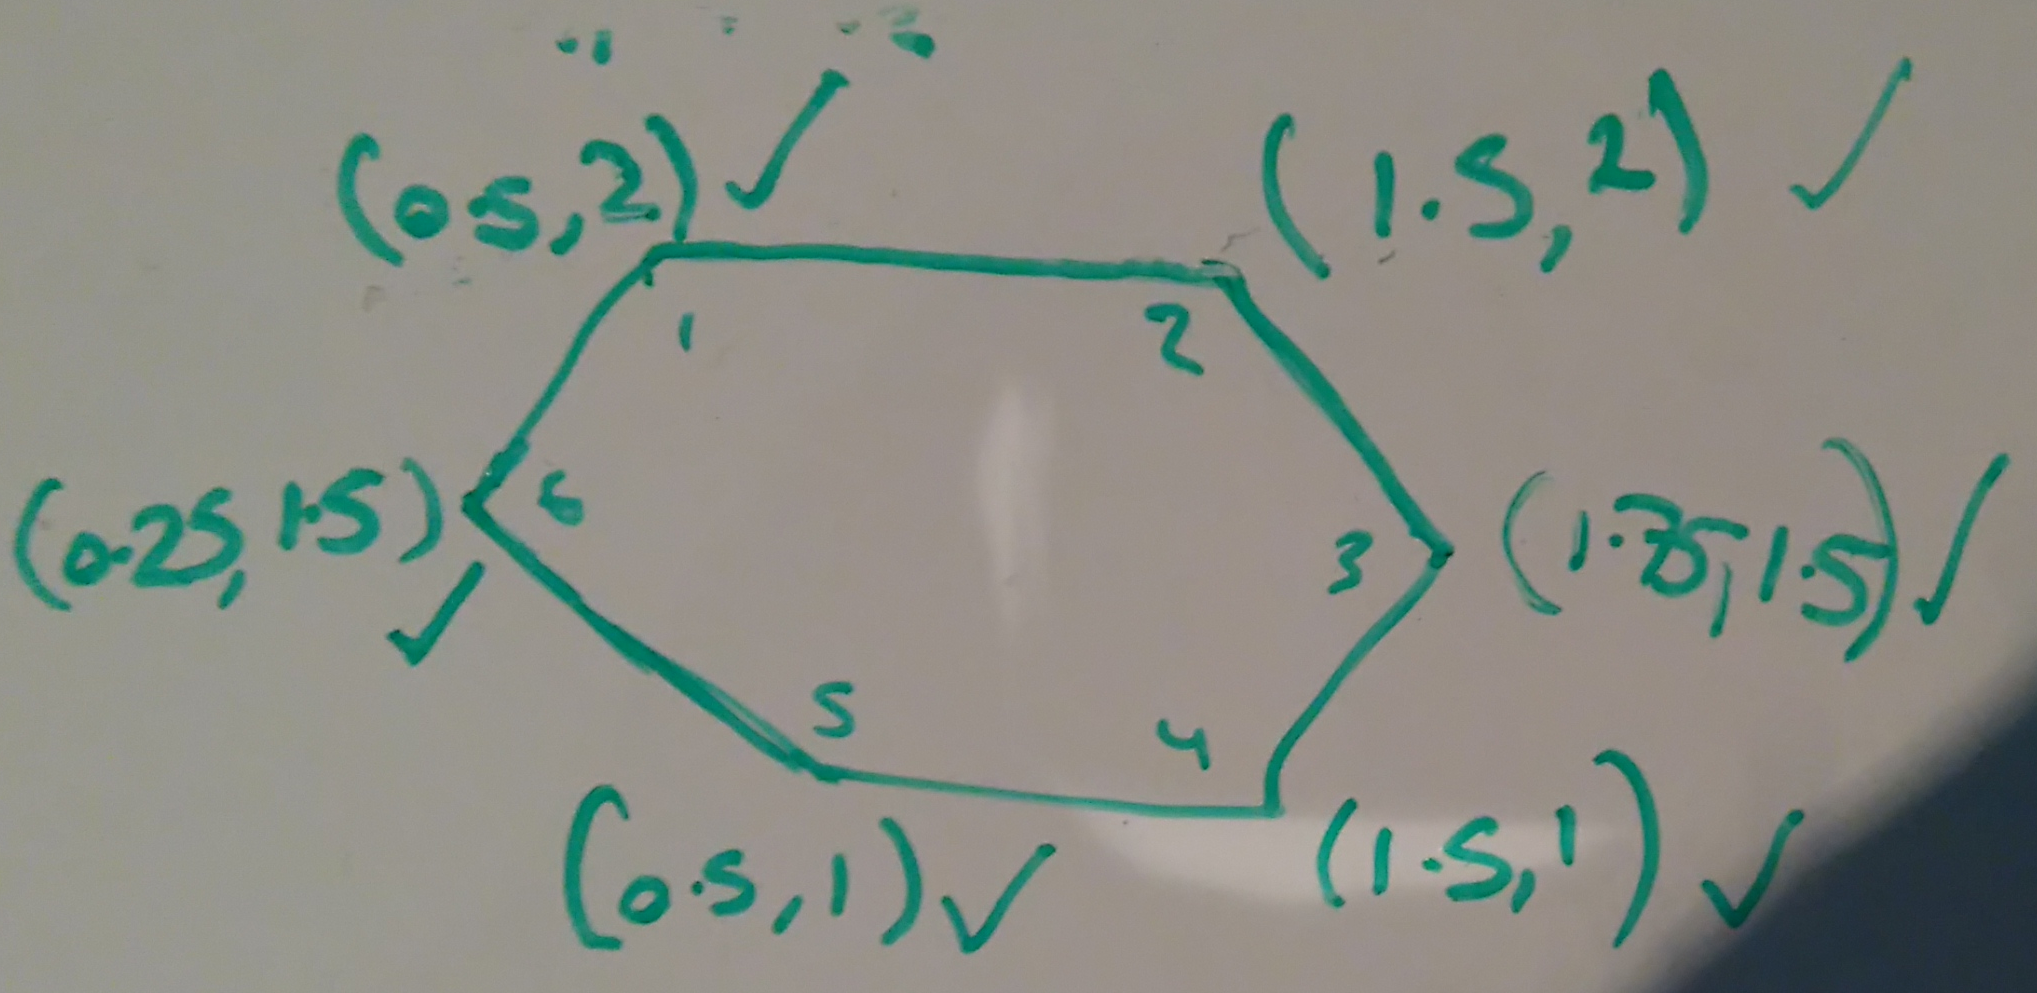 (0.5,2) ✓ (1.5,2) ✓
1 2
(0.25,1.5) ✓ 6 3 (1.75,1.5) ✓
5 4
(0.5,1) ✓ (1.5,1) ✓